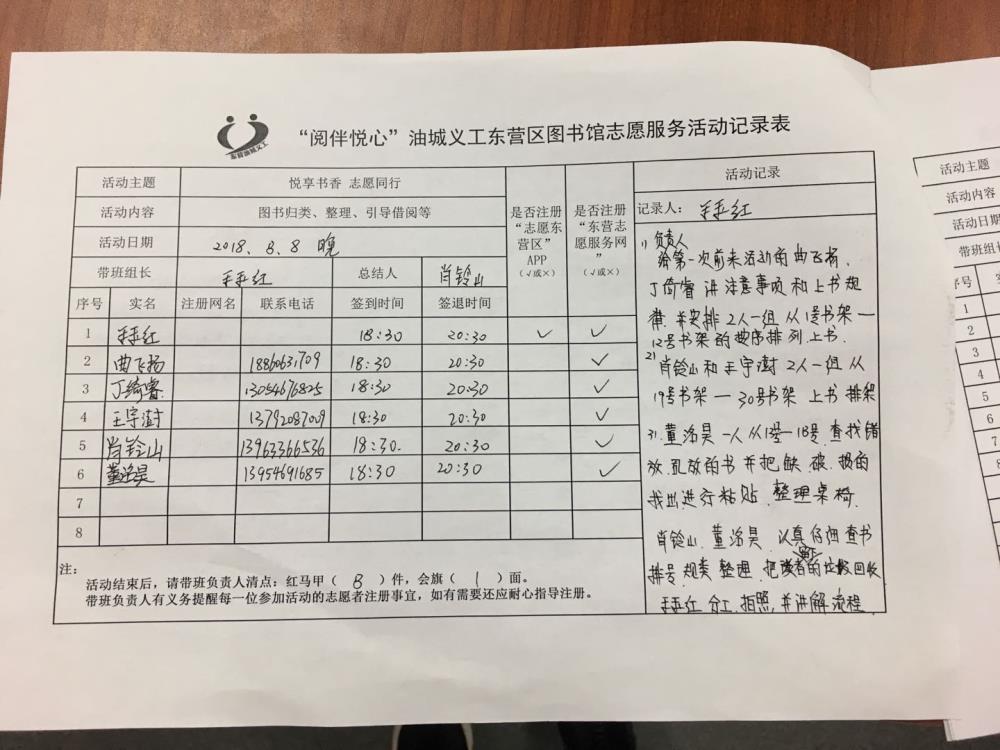 东营油城义工
“阅伴悦心”油城义工东营区图书馆志愿服务活动记录表
活动主题 悦享书香 志愿同行
活动内容 图书归类、整理、引导借阅等
活动日期 2018.8.8 晚
带班组长 总结人 肖铃山
是否注册“志愿东营区”APP（√或×）
是否注册“东营志愿服务网”（√或×）
序号 实名 注册网名 联系电话 签到时间 签退时间
1 18:30 20:30 ✓ ✓
2 曲飞扬 18:30 20:30 ✓
3 丁绮睿 13054676825 18:30 20:30 ✓
4 王宇澍 13792087009 18:30 20:30 ✓
5 肖铃山 13963366536 18:30. 20:30 ✓
6 董洺昊 13954691685 18:30 20:30 ✓
7
8
注：
活动结束后，请带班负责人清点：红马甲（ 8 ）件，会旗（ 1 ）面。
带班负责人有义务提醒每一位参加活动的志愿者注册事宜，如有需要还应耐心指导注册。
活动记录
记录人：
1) 负责人
给第一次前来活动的曲飞扬、
丁绮睿 讲注意事项和上书规
律.并安排2人一组 从1号书架一
12号书架的按序排列上书.
2) 肖铃山和王宇澍 2人一组 从
19号书架一30号书架 上书 排架
3). 董洺昊 一人从13号一18号.查找错
放.乱放的书并把缺.破.损的
找出进行粘贴.整理桌椅.
肖铃山.董洺昊.认真仔细查书
排号.归类 整理.把读者的垃圾回收
分工.拍照,并讲解流程
活动主题
活动内容
活动日期
带班组长
序号
1
2
3
4
5
6
7
8